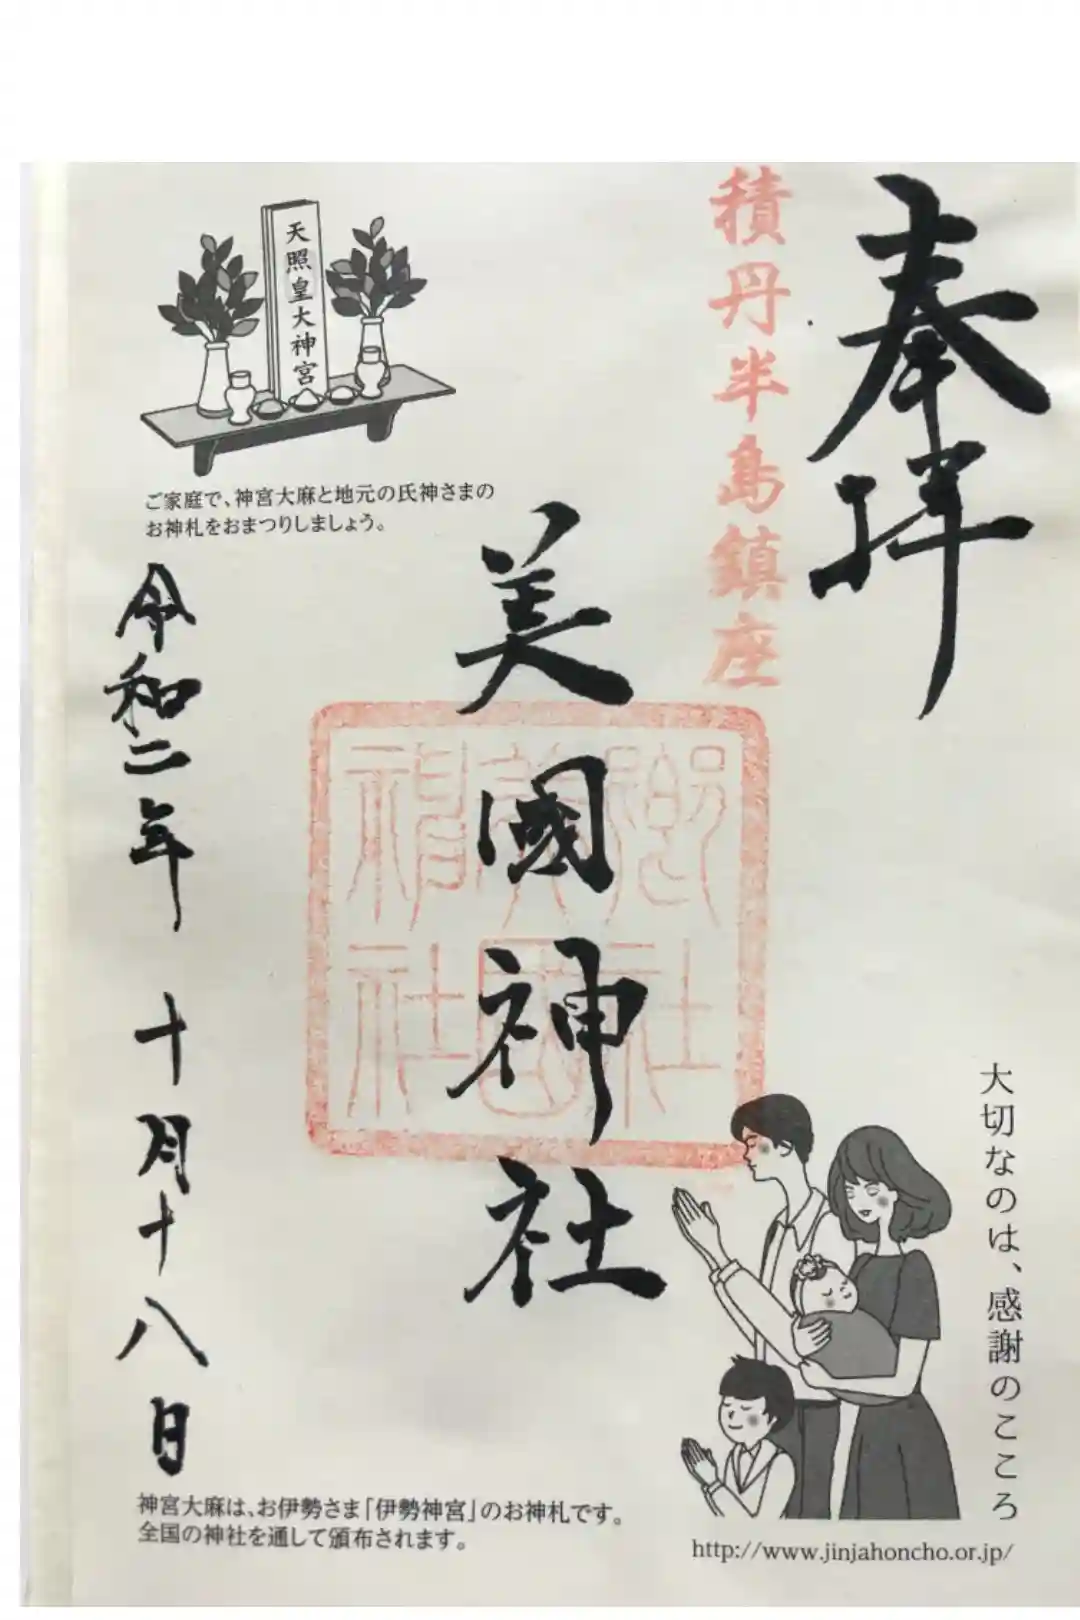 奉拝
積丹半島鎮座
美國神社
郷社
美国
神社
令和二年 十月十八日
天照皇大神宮
ご家庭で、神宮大麻と地元の氏神さまの
お神札をおまつりしましょう。
大切なのは、感謝のこころ
神宮大麻は、お伊勢さま「伊勢神宮」のお神札です。
全国の神社を通して頒布されます。
http://www.jinjahoncho.or.jp/